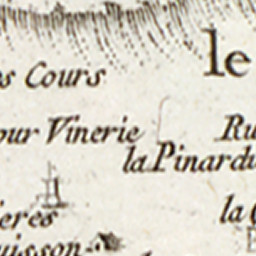 le
es Cours
our Vinerie
Ru
la Pinardi
ieres
la
uisson